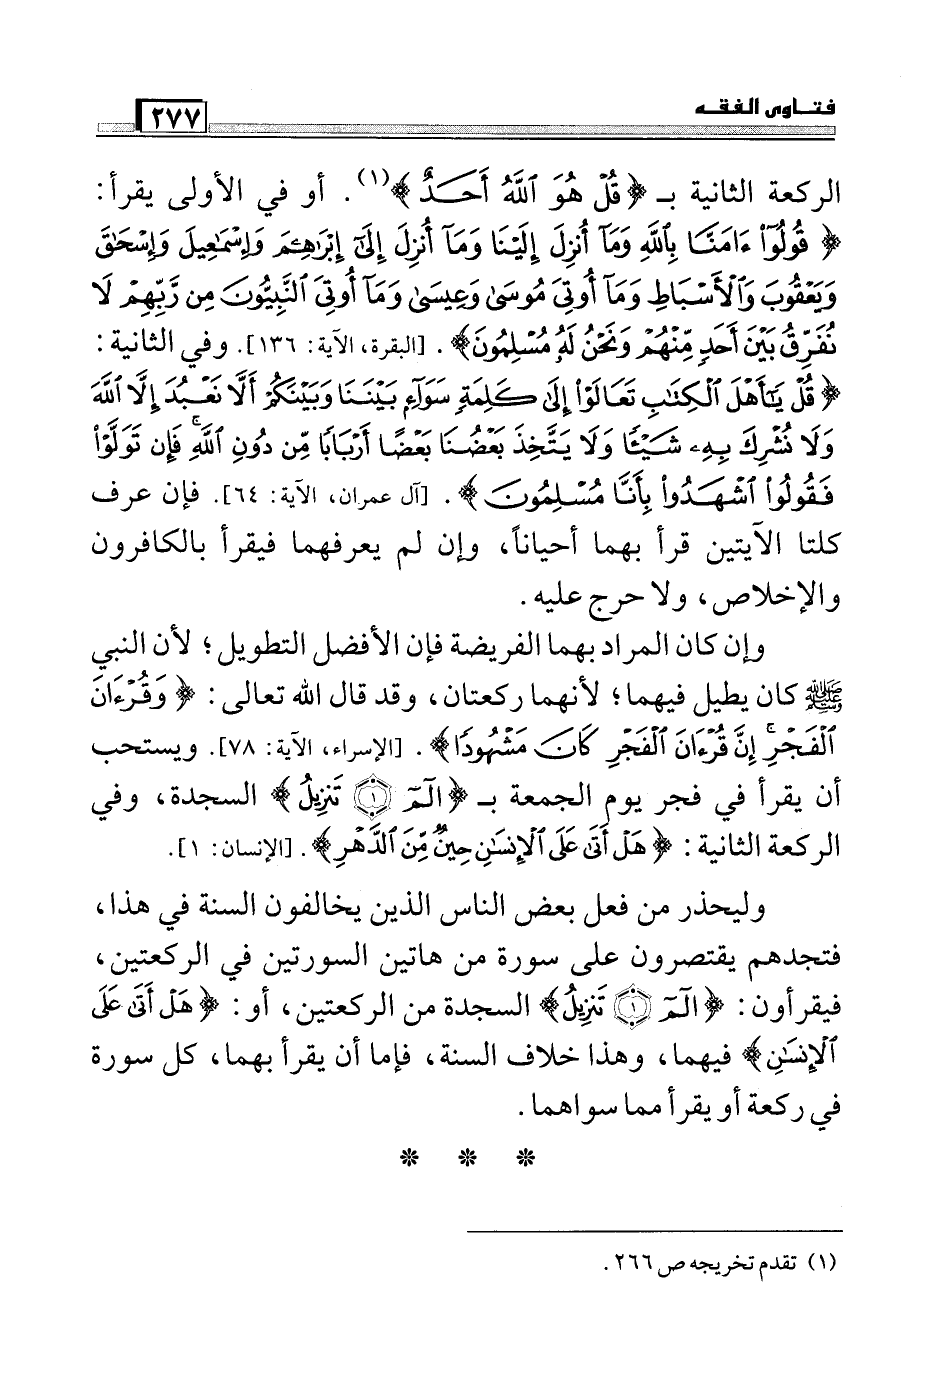 فتاوى الفقه
٢٧٧
الركعة الثانية بـ ﴿قُلْ هُوَ ٱللَّهُ أَحَـدٌ﴾(١). أو في الأولى يقرأ:
﴿قُولُوٓا۟ ءَامَنَّا بِٱللَّهِ وَمَآ أُنزِلَ إِلَيْنَا وَمَآ أُنزِلَ إِلَىٰٓ إِبْرَٰهِـۧمَ وَإِسْمَٰعِيلَ وَإِسْحَٰقَ
وَيَعْقُوبَ وَٱلْأَسْبَاطِ وَمَآ أُوتِىَ مُوسَىٰ وَعِيسَىٰ وَمَآ أُوتِىَ ٱلنَّبِيُّونَ مِن رَّبِّهِمْ لَا
نُفَرِّقُ بَيْنَ أَحَدٍ مِّنْهُمْ وَنَحْنُ لَهُۥ مُسْلِمُونَ﴾. [البقرة، الآية: ١٣٦]. وفي الثانية:
﴿قُلْ يَٰٓأَهْلَ ٱلْكِتَٰبِ تَعَالَوْا۟ إِلَىٰ كَلِمَةٍ سَوَآءٍۭ بَيْنَنَا وَبَيْنَكُمْ أَلَّا نَعْبُدَ إِلَّا ٱللَّهَ
وَلَا نُشْرِكَ بِهِۦ شَيْـًٔا وَلَا يَتَّخِذَ بَعْضُنَا بَعْضًا أَرْبَابًا مِّن دُونِ ٱللَّهِ ۚ فَإِن تَوَلَّوْا۟
فَقُولُوا۟ ٱشْهَدُوا۟ بِأَنَّا مُسْلِمُونَ﴾. [آل عمران، الآية: ٦٤]. فإن عرف
كلتا الآيتين قرأ بهما أحياناً، وإن لم يعرفهما فيقرأ بالكافرون
والإخلاص، ولا حرج عليه.
وإن كان المراد بهما الفريضة فإن الأفضل التطويل؛ لأن النبي
ﷺ كان يطيل فيهما؛ لأنهما ركعتان، وقد قال الله تعالى: ﴿وَقُرْءَانَ
ٱلْفَجْرِ ۖ إِنَّ قُرْءَانَ ٱلْفَجْرِ كَانَ مَشْهُودًا﴾. [الإسراء، الآية: ٧٨]. ويستحب
أن يقرأ في فجر يوم الجمعة بـ ﴿الٓمٓ ۝١ تَنزِيلُ﴾ السجدة، وفي
الركعة الثانية: ﴿هَلْ أَتَىٰ عَلَى ٱلْإِنسَٰنِ حِينٌ مِّنَ ٱلدَّهْرِ﴾. [الإنسان: ١].
وليحذر من فعل بعض الناس الذين يخالفون السنة في هذا،
فتجدهم يقتصرون على سورة من هاتين السورتين في الركعتين،
فيقرأون: ﴿الٓمٓ ۝١ تَنزِيلُ﴾ السجدة من الركعتين، أو: ﴿هَلْ أَتَىٰ عَلَى
ٱلْإِنسَٰنِ﴾ فيهما، وهذا خلاف السنة، فإما أن يقرأ بهما، كل سورة
في ركعة أو يقرأ مما سواهما.
* * *
(١) تقدم تخريجه ص ٢٦٦.